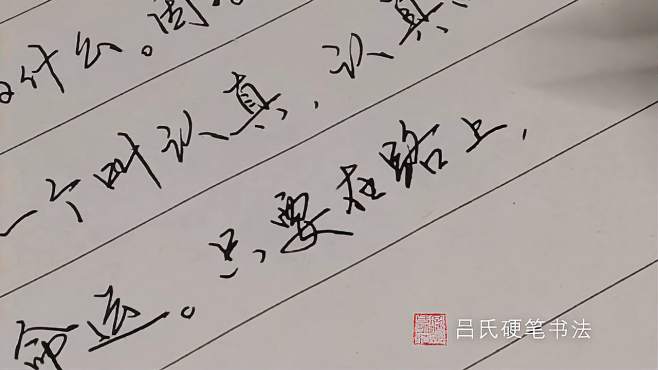 什么。周
一个叫认真，认真
命运。只要在路上，
吕氏硬笔书法